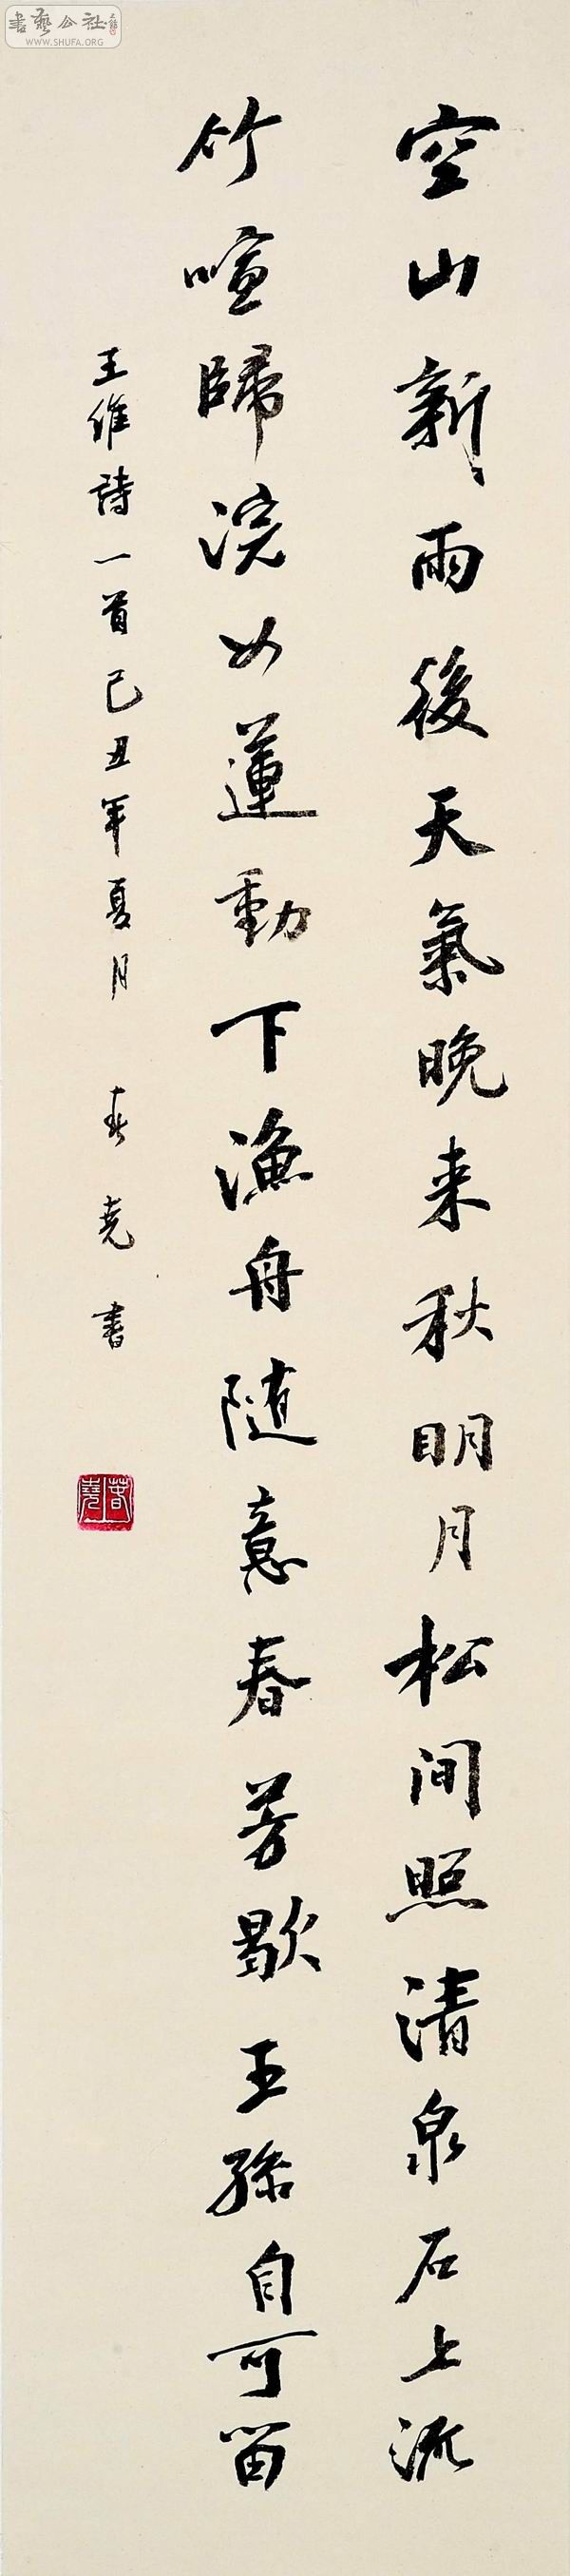 空山新雨後天氣晚来秋明月松间照清泉石上流
竹喧歸浣女蓮動下漁舟随意春芳歇王孫自可留
王維詩一首己丑年夏月 春堯書
春堯
書藝公社
WWW.SHUFA.ORG